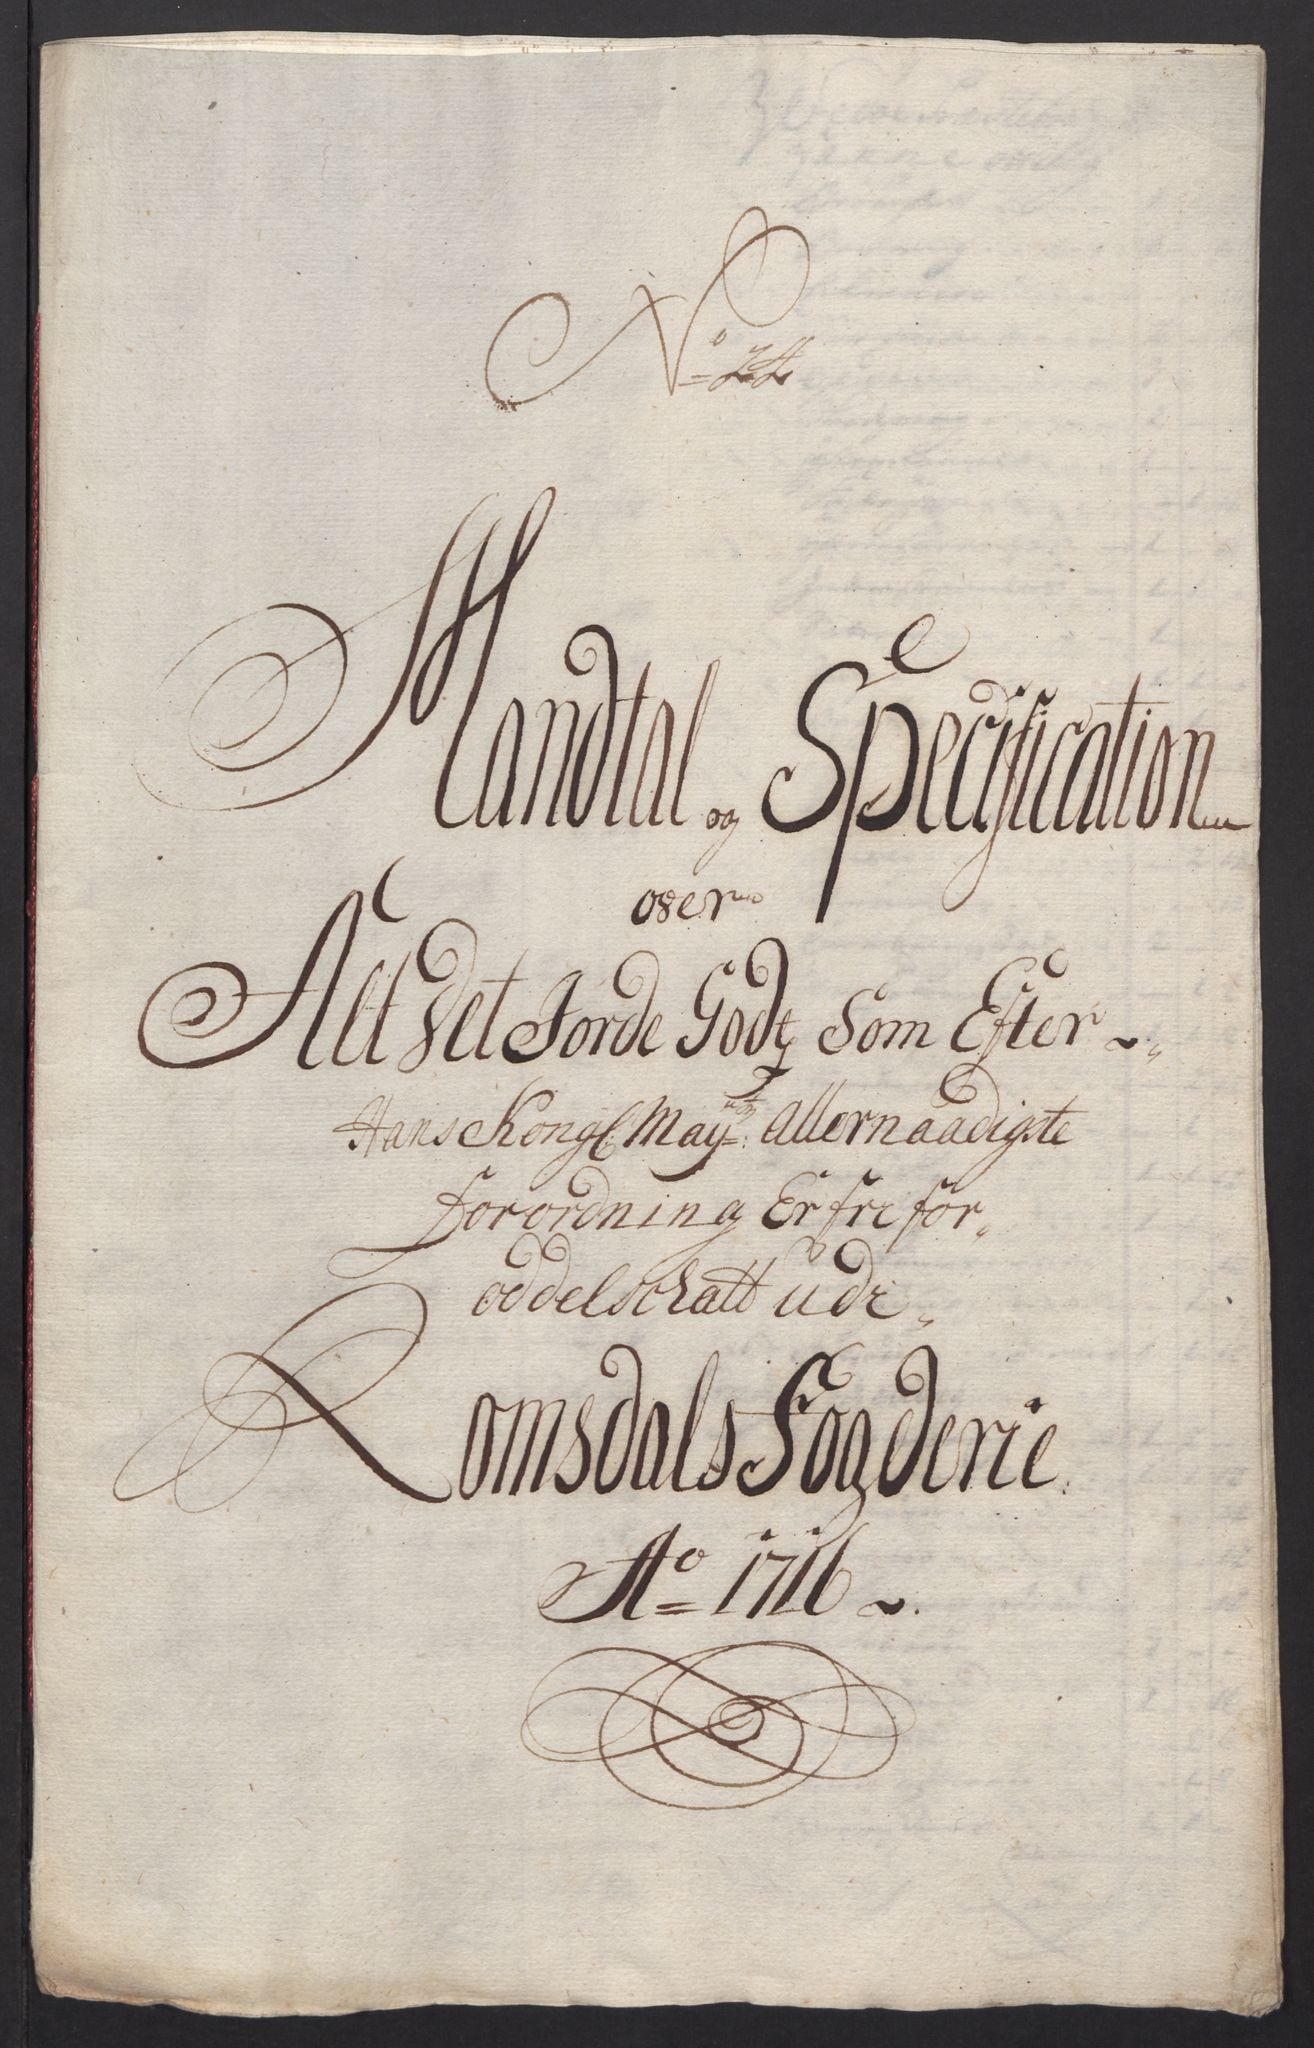 No
Mandtal og Specification
over
Alt det Jorde Godtz Som Efter
Hans Kongl: Mayts: Allernaadigste
Forordning Er fri for
oddelschatt udi
Romsdals Fogderie
Ao 1716